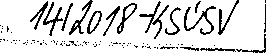 14/2018-KSÚSV